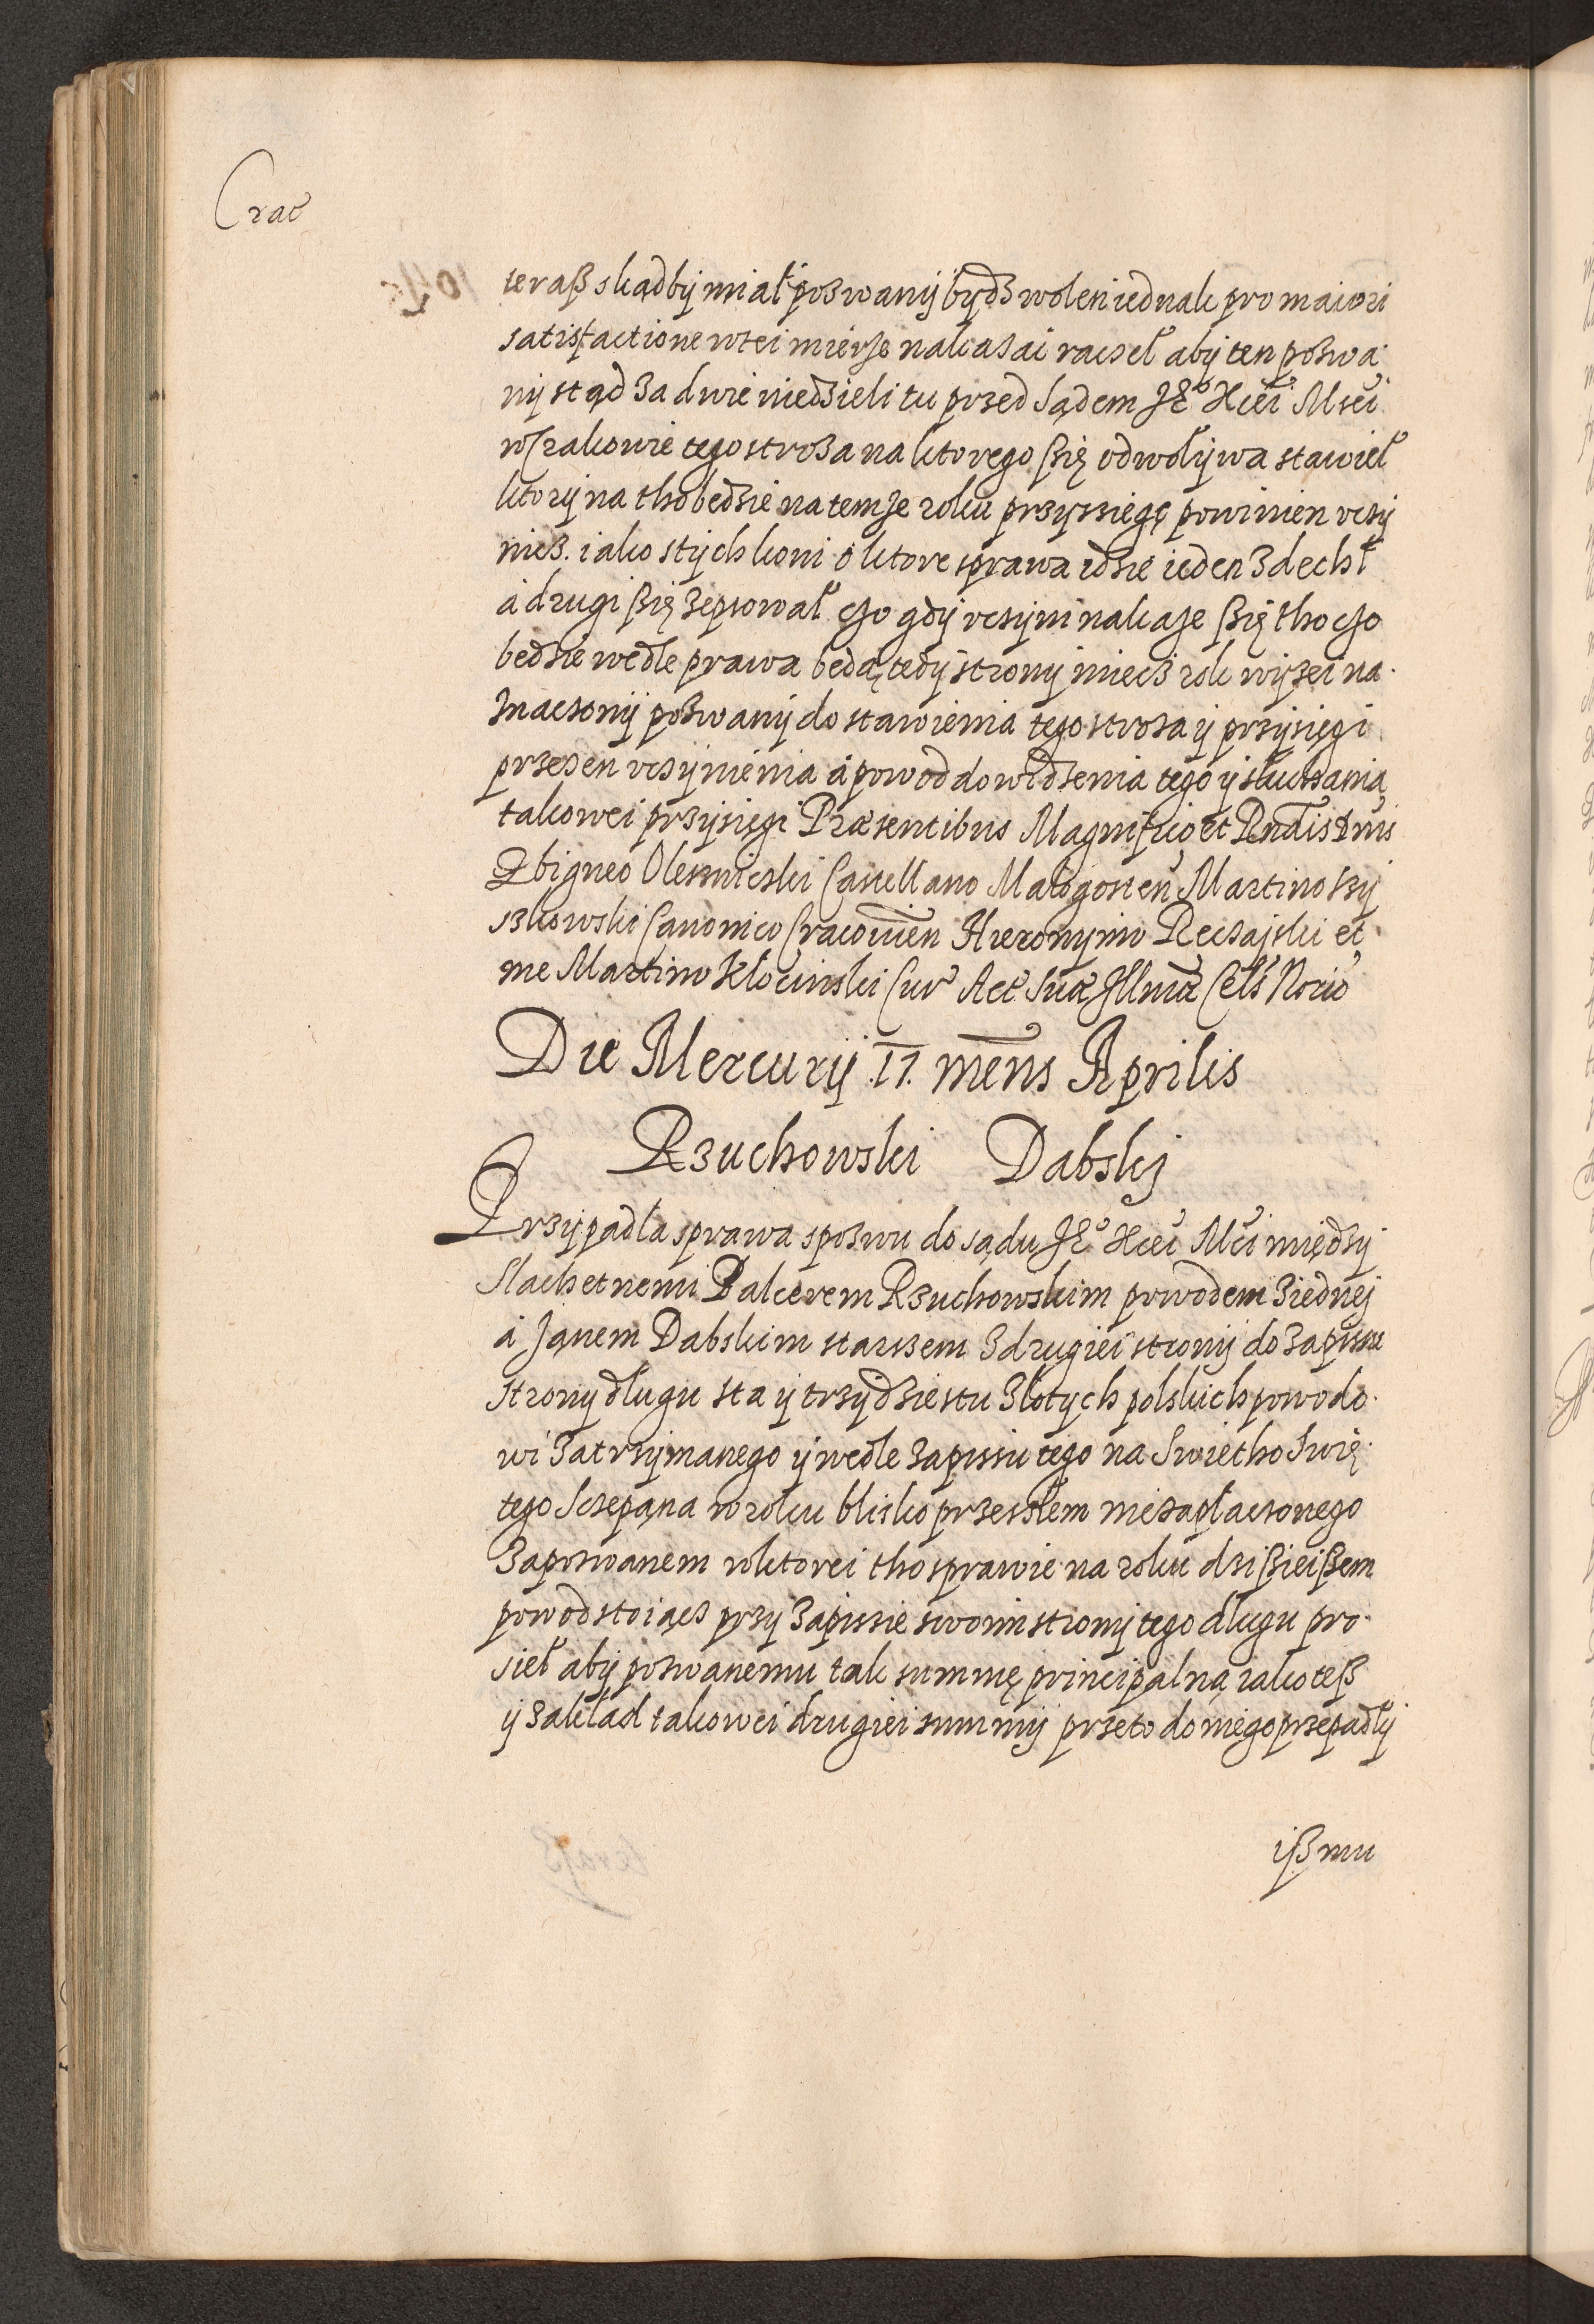 Crac
teraß skądbÿ miał pozwanÿ bÿdz wolen iednak pro maiori
satisfactione wtei mierze nakazai raczeł abÿ ten pozwa
nÿ stąd za dwie niedzieli tu przed Sądem Je° Xcei Mcei
wCrakowie tego stroza na ktorego ßię odwolÿwa stawieł
ktorÿ na tho bedzie na temze roku przÿssiegę powinien vczÿ
niez. iako stÿch koni o ktore sprawa idzie ieden zdechł
a drugi ßię zepsował czo gdÿ vczÿni nakaze ßię tho czo
bedzie wedle prawa bedą tedÿ stronÿ miecz rok wÿzei na
znaczonÿ pozwanÿ do stawienia tego stroza ÿ przÿsięgi
przezen vczÿnienia a powod do widzenia tego ÿ słuchania
takowei przÿsięgi Præsentibus Magnifico et Rndis Dnis
Zbigneo Olesniczki Castellano Małogosten Martino Szÿ
szkowski Canonico Cracovien Hieronÿmo Reczajski et
me Martino Kłocinski Cur Act Suæ Illmæ Cels Norio
Die Mercurÿ .11. mens Aprilis
Rzuchowski Dabskj
Przÿpadła sprawa spozwu do sądu Je° Xcei Mci międzÿ
Slachetnemi Balcerem Rzuchowskim powodem ziednej
a Janem Dabskim starszem zdrugiei stronÿ do zapissu
stronÿ dlugu sta ÿ trzÿdziestu Zlotÿch polskich powodo
wi zatrzÿmanego ÿ wedle zapissu tego na Swietho Swię
tego Sczepąna wroku blisko przeszłem niezapłaczonego
zapozwanem wktorei tho sprawie na roku dzißieißem
powod stoiącz przÿ zapissie swoim stronÿ tego dlugu pro
sieł abÿ pozwanemu tak summę principalną iako teß
ÿ zakład takowei drugiei summÿ przeto do niego przepadłÿ
ißmu